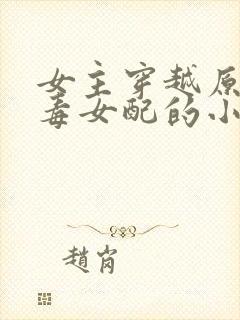 女主穿越原
毒女配的小
趙肖